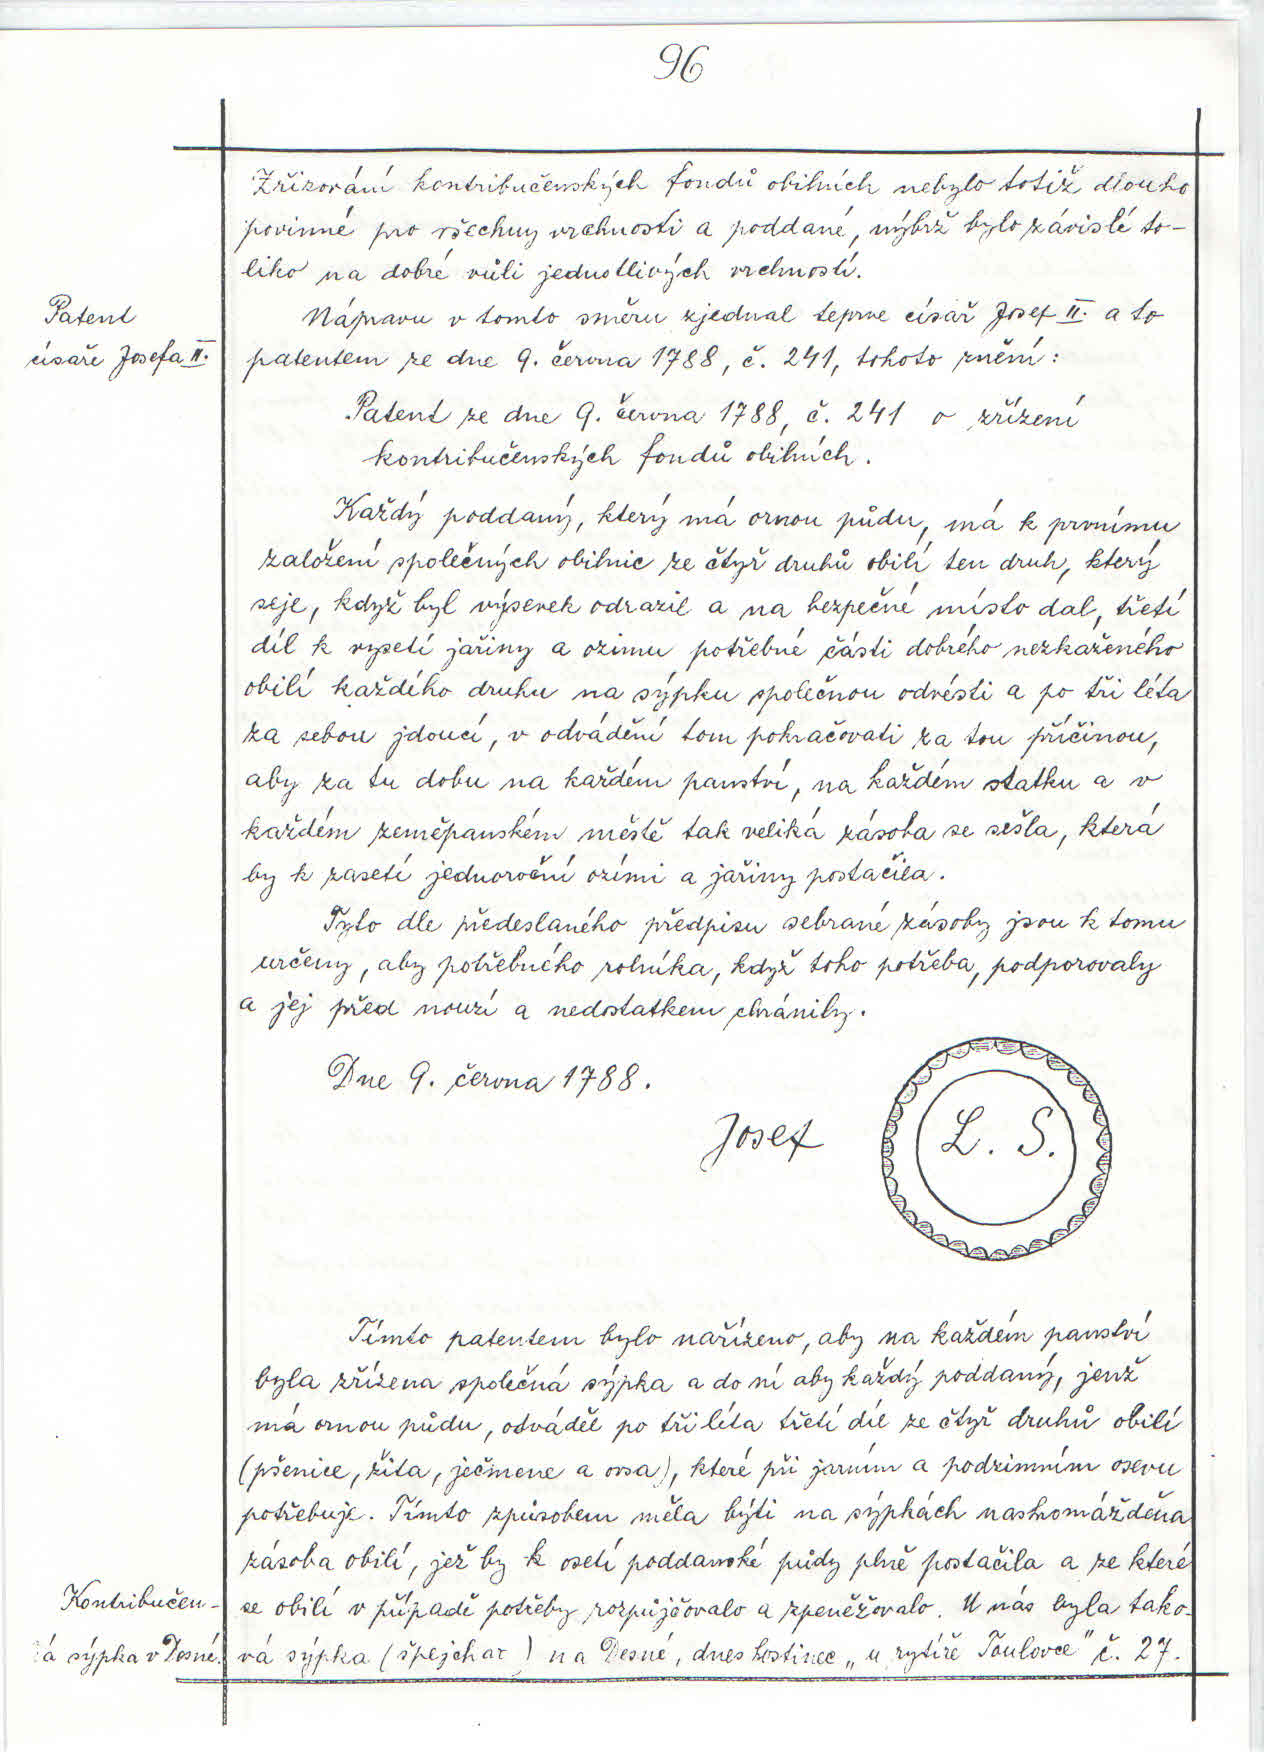 96
Zřizování kontribučenských fondů obilních nebylo totiž dlouho
povinné pro všechny vrchnosti a poddané, nýbrž bylo závislé to-
liko na dobré vůli jednotlivých vrchností.
Patent
císaře Josefa II.
Nápravu v tomto směru zjednal teprve císař Josef II. a to
patentem ze dne 9. června 1788, č. 241, tohoto znění:
Patent ze dne 9. června 1788, č. 241 o zřízení
kontribučenských fondů obilních.
Každý poddaný, který má ornou půdu, má k prvnímu
založení společných obilnic ze čtyř druhů obilí ten druh, který
seje, když byl výsevek odrazil a na bezpečné místo dal, třetí
díl k vysetí jařiny a ozimu potřebné části dobrého nezkaženého
obilí každého druhu na sýpku společnou odvésti a po tři léta
za sebou jdoucí, v odvádění tom pokračovati za tou příčinou,
aby za tu dobu na každém panství, na každém statku a v
každém zeměpanském městě tak veliká zásoba se sešla, která
by k zasetí jednoroční ozimi a jařiny postačila.
Tyto dle předeslaného předpisu sebrané zásoby jsou k tomu
určeny, aby potřebného rolníka, když toho potřeba, podporovaly
a jej před nouzí a nedostatkem chránily.
Dne 9. června 1788.
Josef
L. S.
Tímto patentem bylo nařízeno, aby na každém panství
byla zřízena společná sýpka a do ní aby každý poddaný, jenž
má ornou půdu, odváděl po tři léta třetí díl ze čtyř druhů obilí
(pšenice, žita, ječmene a ovsa), které při jarním a podzimním osevu
potřebuje. Tímto způsobem měla býti na sýpkách nashromážděna
zásoba obilí, jež by k osetí poddanské půdy plně postačila a ze které
se obilí v případě potřeby rozpůjčovalo a zpeněžovalo. U nás byla tako-
vá sýpka (špejchar) na Desné, dnes hostinec „u rytíře Toulovce" č. 27.
Kontribučen-
á sýpka v Desné.